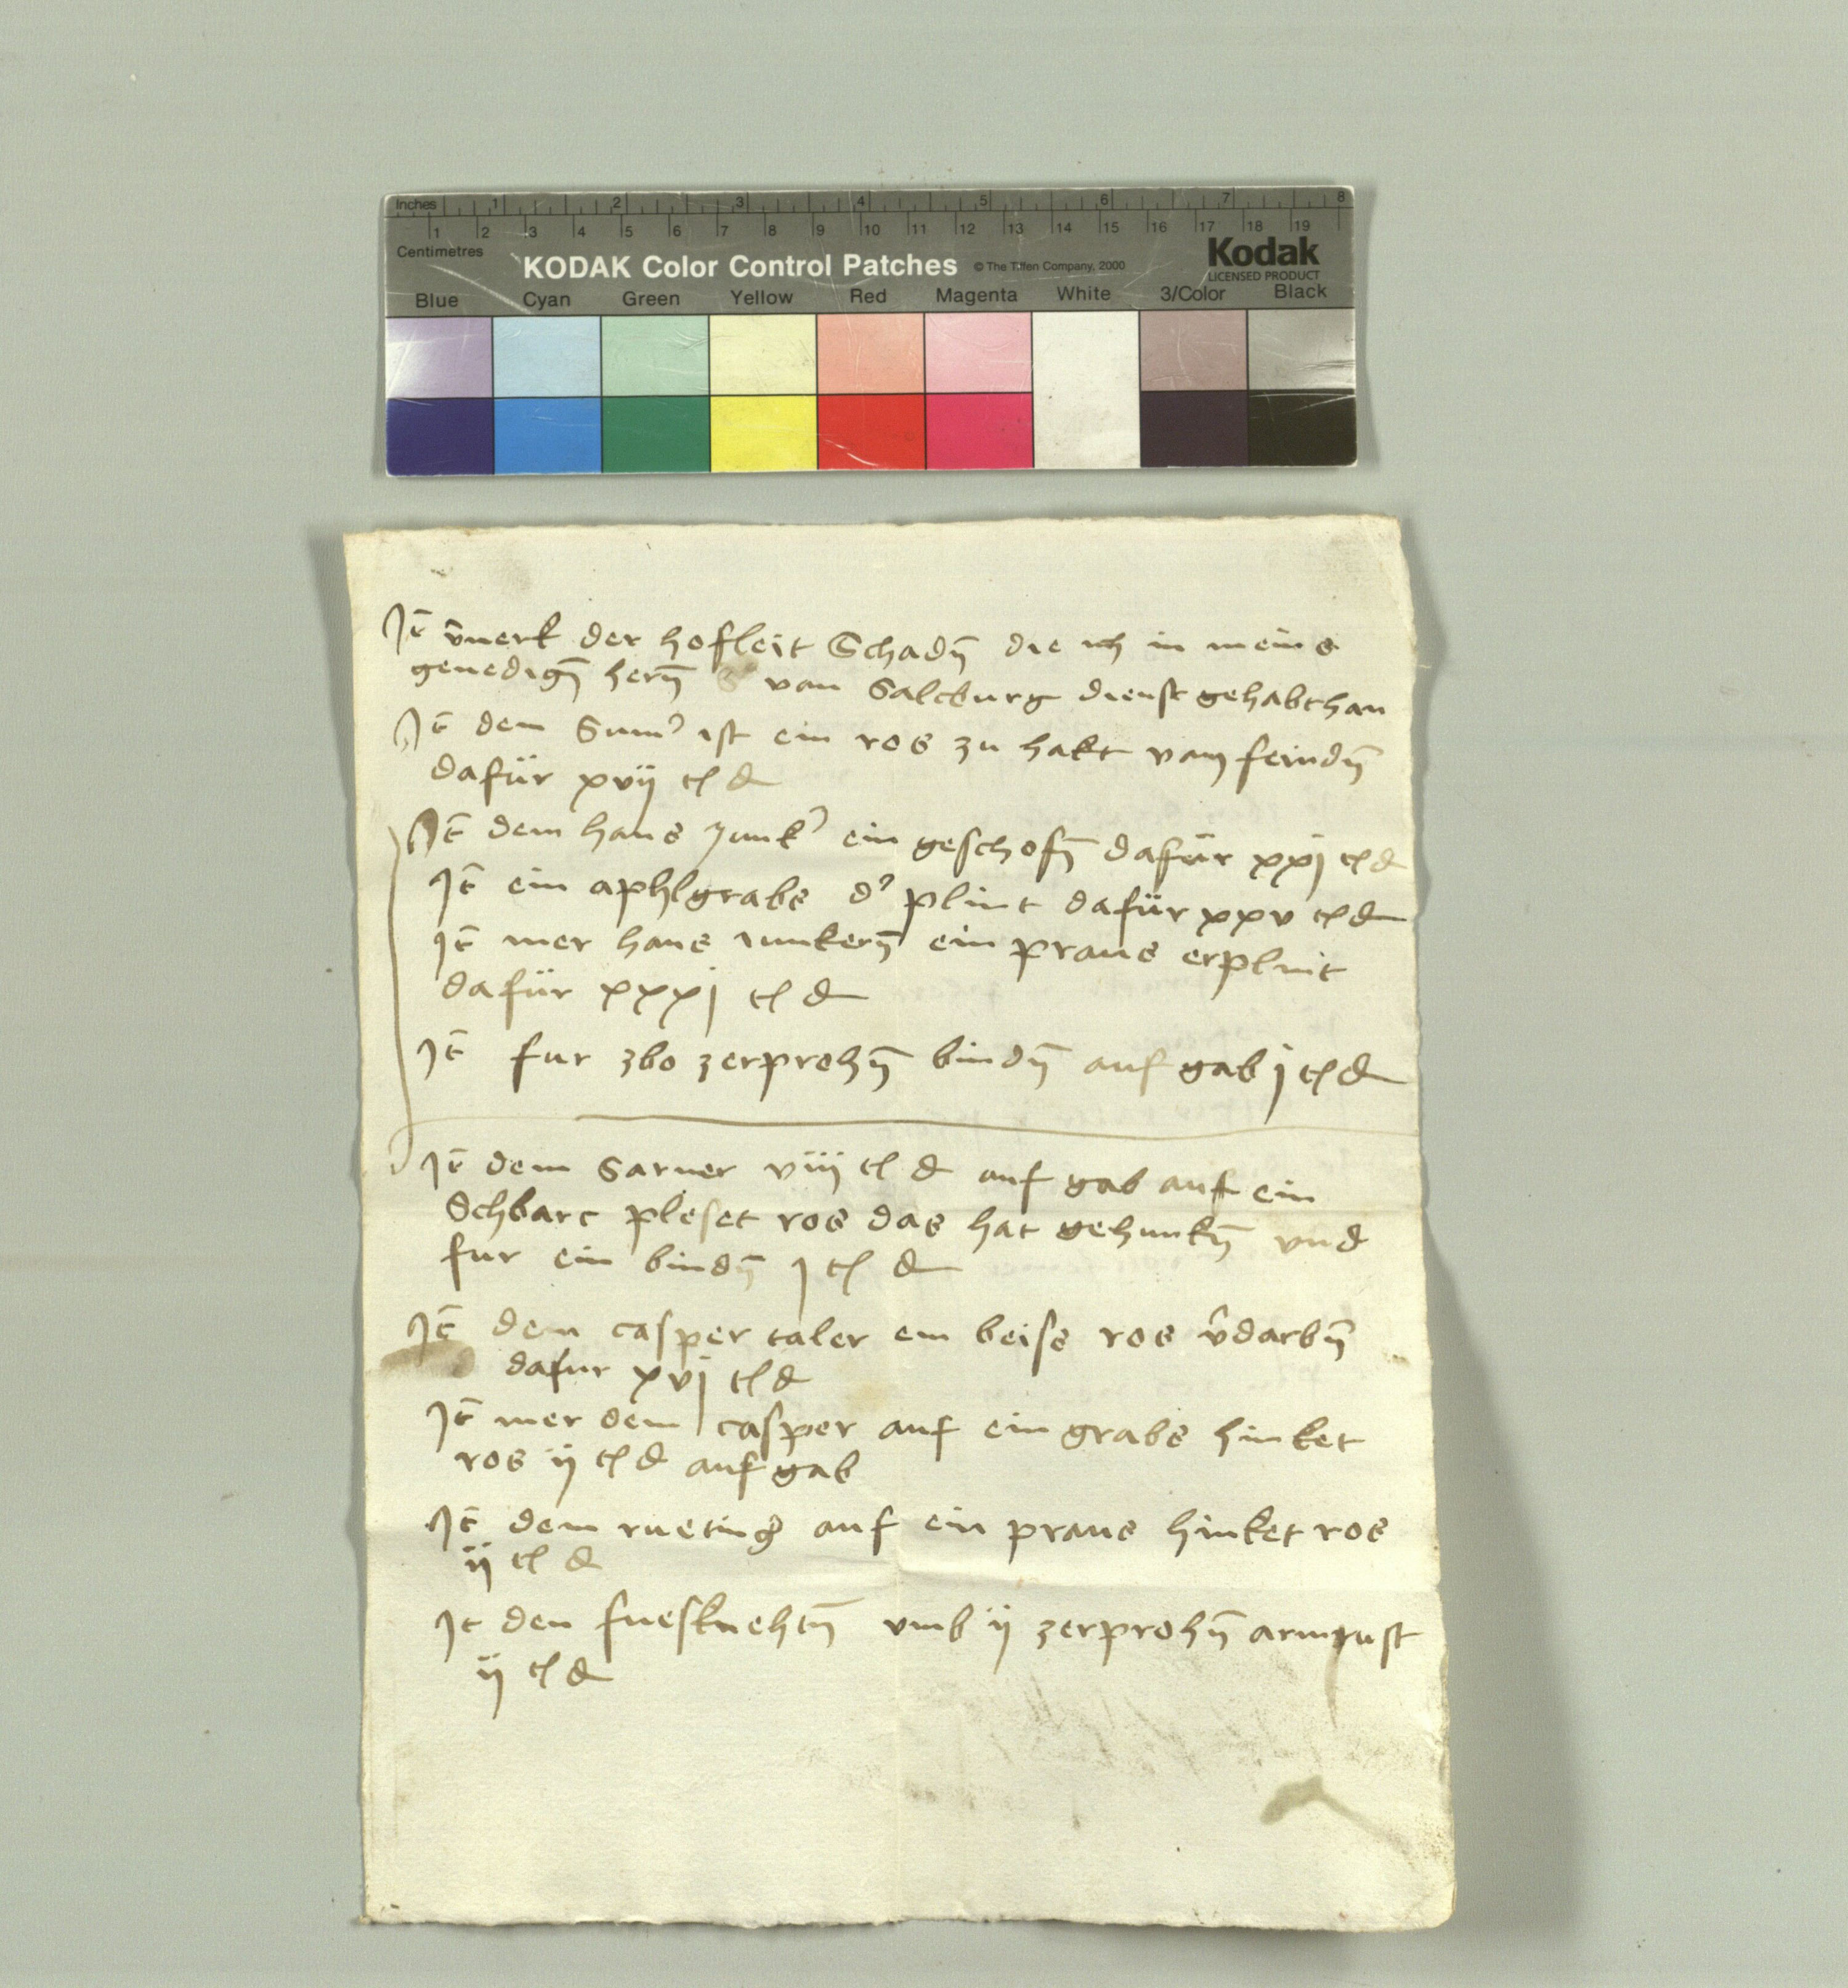 Inches 1 2 3 4 5 6 7 8
1 2 3 4 5 6 7 8 9 10 11 12 13 14 15 16 17 18 19
Centimetres
KODAK Color Control Patches © The Tiffen Company, 2000 Kodak
LICENSED PRODUCT
Blue Cyan Green Yellow Red Magenta White 3/Color Black
It̄ v̄merk der hofleit Schadn̄ die ich in meins
genedign̄ hern̄ van Salcburg dienst gehabt han
It̄ dem Sum̕ ist ein ros zu hakt vam feindn̄
dafür xvij tl d
It̄ dem hans Junk̕ ein geschosn̄ dafür xxj tl d
It̄ ein aphlgrabs d̕ plint dafür xxv tl d
It̄ mer hans iunkern̄ ein prauns erplint
dafür xxxj tl d
It̄ fur zbo zerprohn̄ bindn̄ auf gab j tl d
It̄ dem Sarner viij tl d auf gab auf ein
Schbarc pleset ros das hat gehunkn̄ vnd
fur ein bindn̄ j tl d
It̄ dem casper taler ein beiss ros v̄darbn̄
dafur xvj tl d
It̄ mer dem casper auf ein grabs hinket
ros ij tl d auf gab
It̄ dem rueting̕ auf ein prauns hinket ros
ij tl d
It den fuesknehtn̄ vmb ij zerprohn̄ armrust
ij tl d